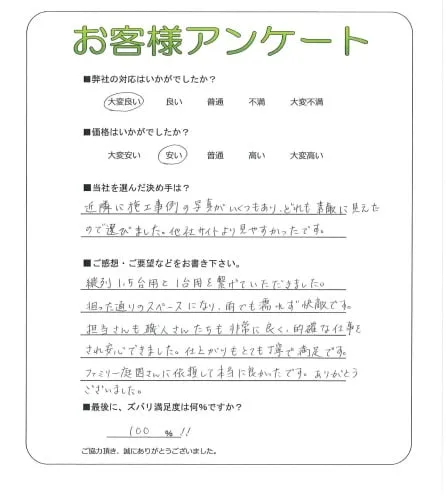 お客様アンケート
■弊社の対応はいかがでしたか？
大変良い 良い 普通 不満 大変不満
■価格はいかがでしたか？
大変安い 安い 普通 高い 大変高い
■当社を選んだ決め手は？
近隣に施工事例の写真がいくつもあり、どれも素敵に見えた
ので選びました。他社サイトより見やすかったです。
■ご感想・ご要望などをお書き下さい。
縦列1.5台用と1台用を繋げていただきました。
狙った通りのスペースになり、雨でも濡れず快適です。
担当さんも職人さんたちも非常に良く、的確な仕事を
され安心できました。仕上がりもとても丁寧で満足です。
ファミリー庭園さんに依頼して本当に良かったです。ありがとう
ございました。
■最後に、ズバリ満足度は何％ですか？
100 ％!!
ご協力頂き、誠にありがとうございました。